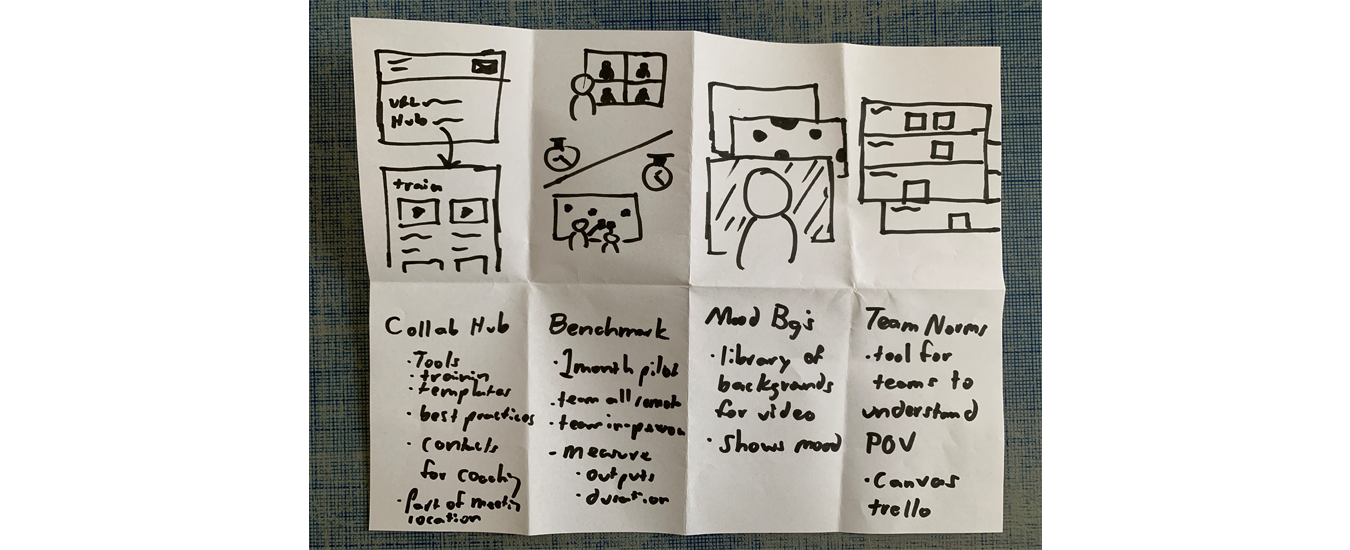 URL
Hub
train
Collab Hub
· Tools
· trainin
· templates
· best practices
· contacts
for coaching
· Part of meetin
location
Benchmark
· 1 month pilot
· team all remot
· team in-person
- measure
· outputs
· duration
Mood Bg's
· library of
backgrounds
for video
· shows mood
Team Norms
· tool for
teams to
understand
POV
· Canvas
trello